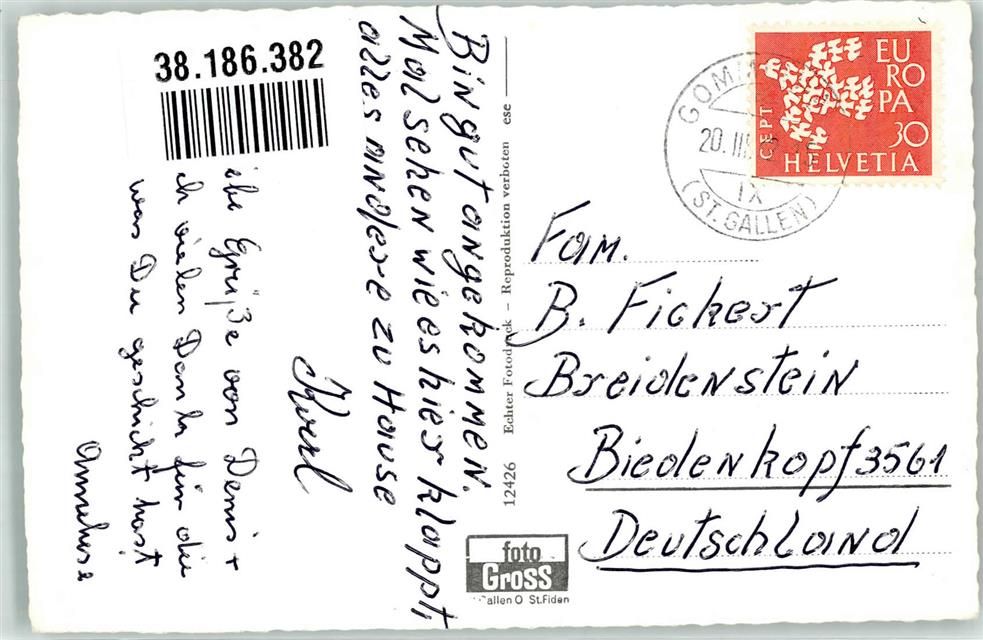 38.186.382
Bin gut angekommen.
Mal sehen wie es hier klappt,
alles andere zu Hause
Karl
Grüße von Denis +
ch vielen Dank für die
was Du geschickt hast
Annelise
12426 Echter Fotodruck – Reproduktion verboten ese
foto
Gross
allen O St.Fiden
GOMM
20. III.
IX
(ST. GALLEN)
EU
RO
PA
CEPT
30
HELVETIA
Fam.
B. Fickert
Breidenstein
Biedenkopf 3561
Deutschland